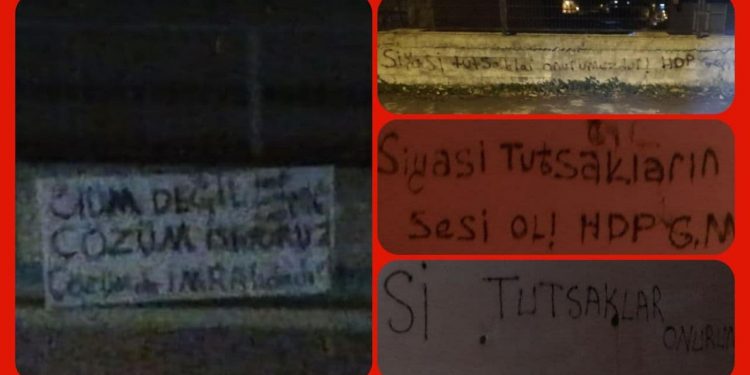 ÖLÜM DEĞİL
ÇÖZÜM İSTİYORUZ
Çözümde İMRALIdadır
Siyasi tutsaklar onurumuzdur! HDP Gen
Siyasi Tutsakların
Sesi OL! HDP G.M
Si TUTSAKLAR
ONURUM